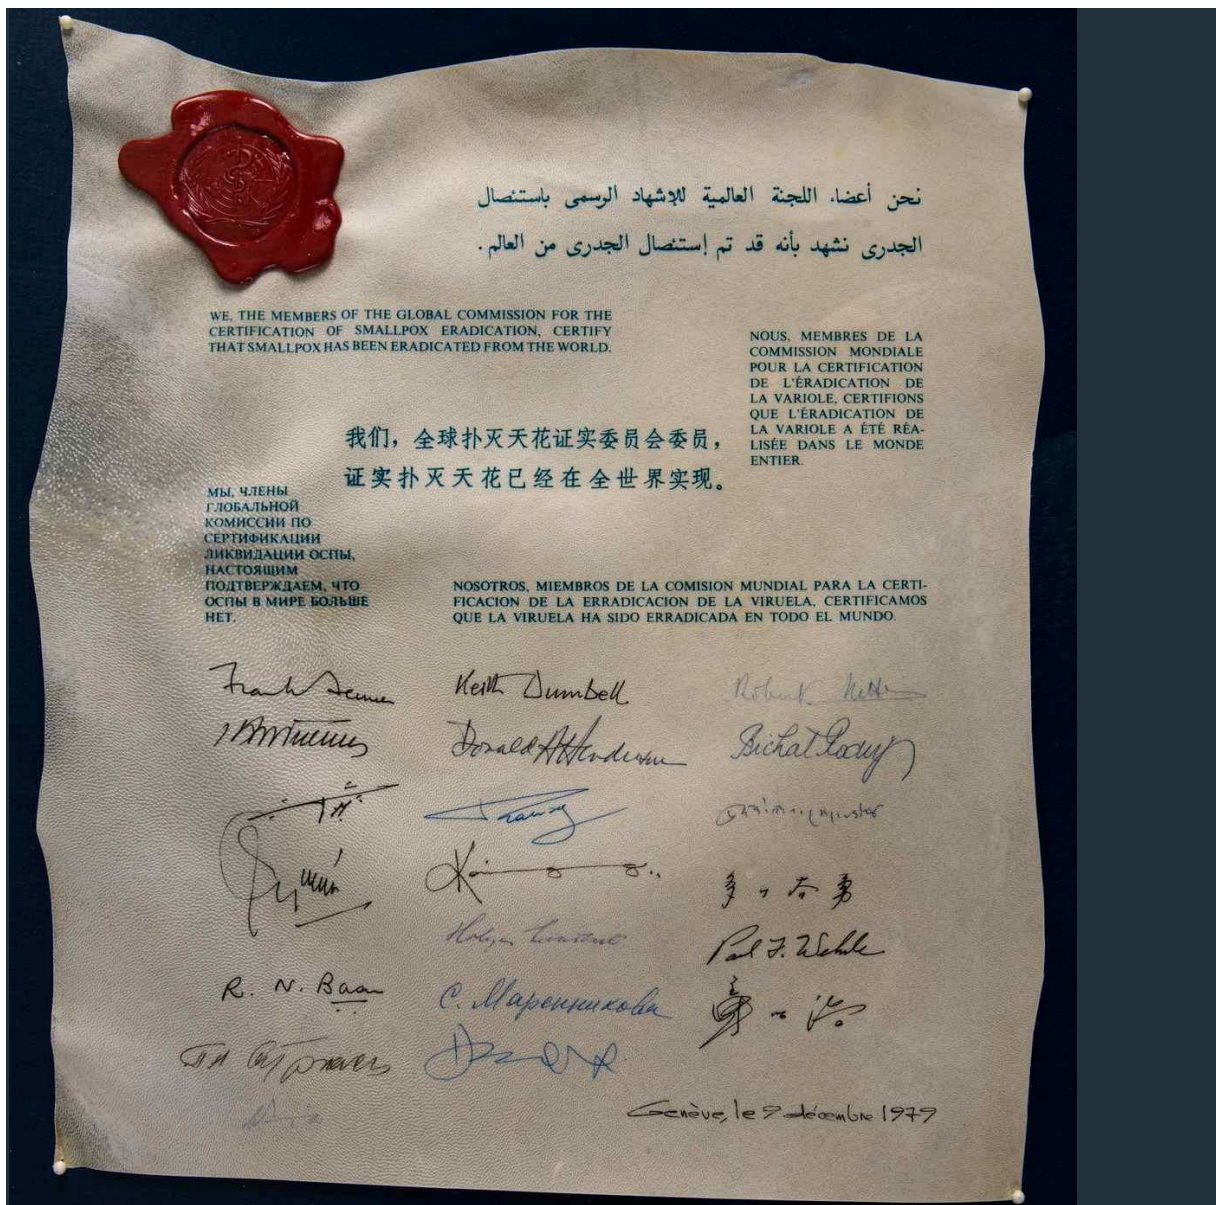 نحن أعضاء اللجنة العالمية للإشهاد الرسمى باستئصال
الجدرى نشهد بأنه قد تم إستئصال الجدرى من العالم .
WE, THE MEMBERS OF THE GLOBAL COMMISSION FOR THE
CERTIFICATION OF SMALLPOX ERADICATION, CERTIFY
THAT SMALLPOX HAS BEEN ERADICATED FROM THE WORLD.
NOUS, MEMBRES DE LA
COMMISSION MONDIALE
POUR LA CERTIFICATION
DE L'ÉRADICATION DE
LA VARIOLE, CERTIFIONS
QUE L'ÉRADICATION DE
LA VARIOLE A ÉTÉ RÉA-
LISÉE DANS LE MONDE
ENTIER.
我们，全球扑灭天花证实委员会委员，
证实扑灭天花已经在全世界实现。
МЫ, ЧЛЕНЫ
ГЛОБАЛЬНОЙ
КОМИССИИ ПО
СЕРТИФИКАЦИИ
ЛИКВИДАЦИИ ОСПЫ,
НАСТОЯЩИМ
ПОДТВЕРЖДАЕМ, ЧТО
ОСПЫ В МИРЕ БОЛЬШЕ
НЕТ.
NOSOTROS, MIEMBROS DE LA COMISION MUNDIAL PARA LA CERTI-
FICACION DE LA ERRADICACION DE LA VIRUELA, CERTIFICAMOS
QUE LA VIRUELA HA SIDO ERRADICADA EN TODO EL MUNDO.
Frank Fenner Keith Dumbell Robert
Donald A Henderson Bichat
Paul F. Wehrle
R. N. Basu С. Маренникова
Genève, le 9 décembre 1979